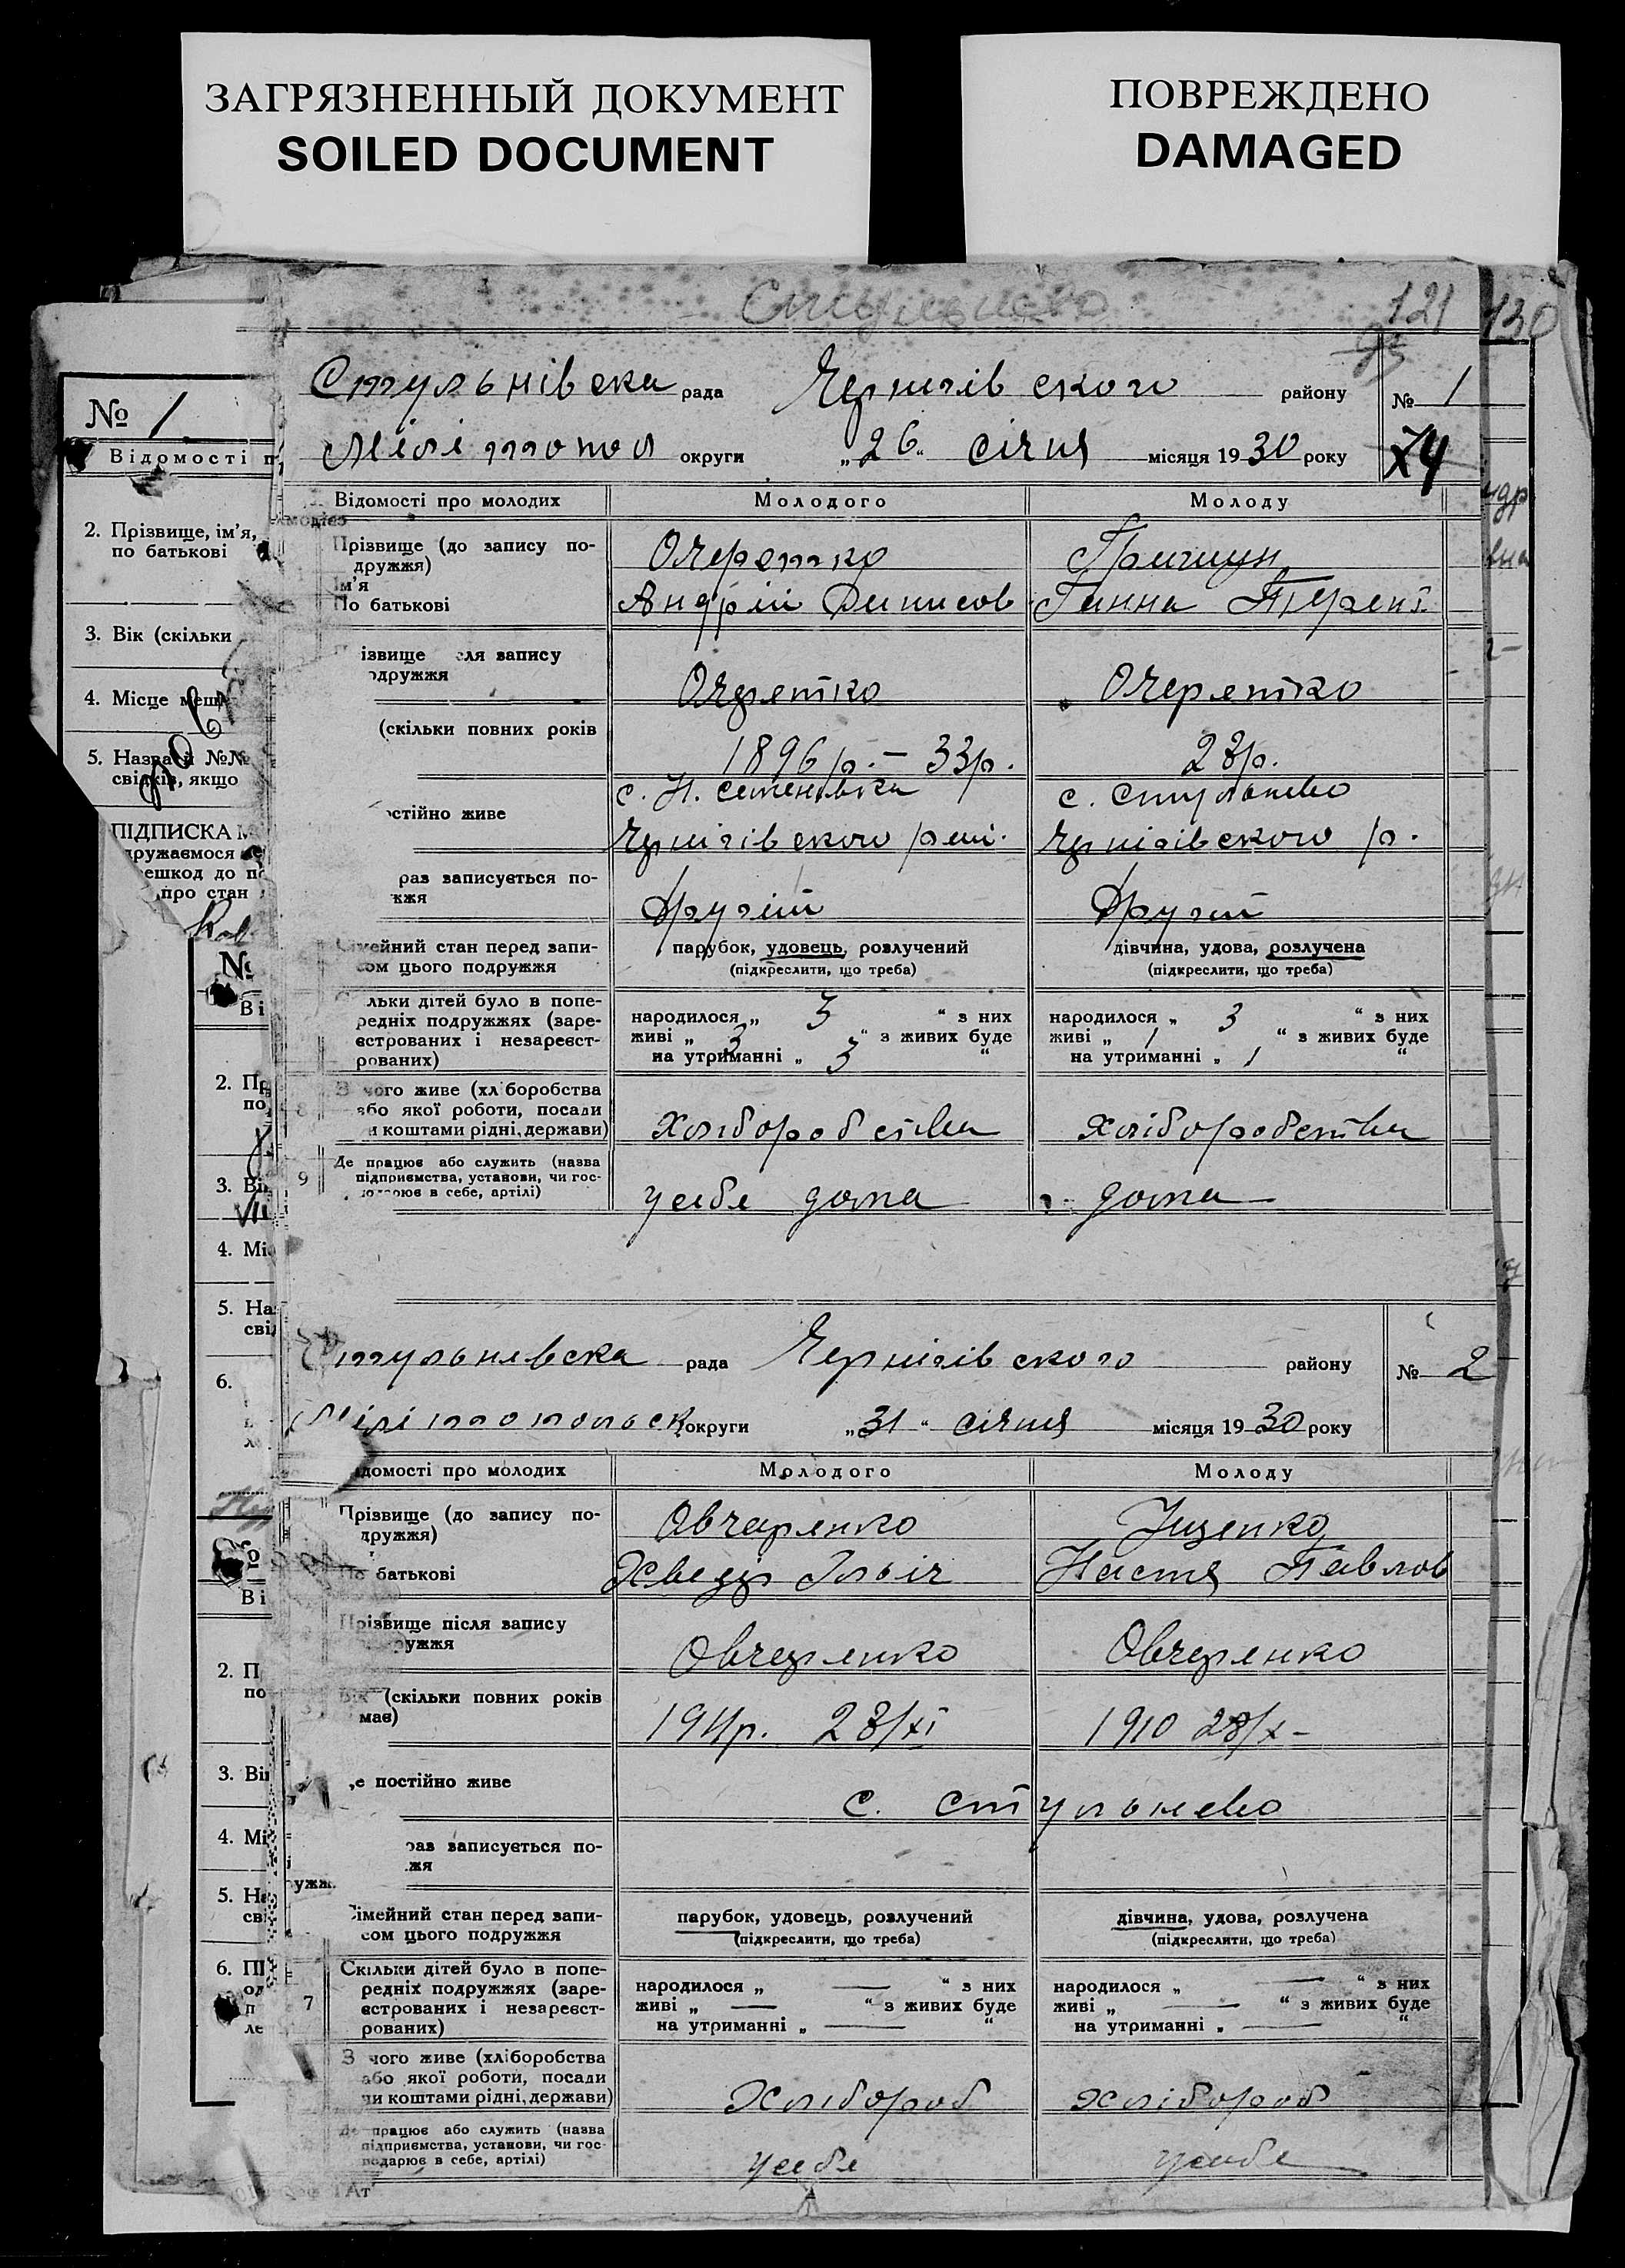 ЗАГРЯЗНЕННЫЙ ДОКУМЕНТ
SOILED DOCUMENT
ПОВРЕЖДЕНО
DAMAGED
Стульнево
121
130
93
Стульнівска рада Чернігівского району № 1
Мелітопол округи „26“ січня місяця 1930 року
74
Відомості про молодих Молодого Молоду
Прізвище (до запису по-
дружжя) Очеретко
Ім'я
По батькові Андрій Денисов Ганна Терент
ізвище сля запису
одружжя Очеретко Очеретко
(скільки повних років
1896 р. – 33р. 23р.
с. Н. Семенівка с. Стульнево
остійно живе
Чернігівского рай. Чернігівского р.
раз записується по-
жжя Другий Другий
Сімейний стан перед запи-
сом цього подружжя
парубок, удовець, розлучений
(підкреслити, що треба)
дівчина, удова, розлучена
(підкреслити, що треба)
льки дітей було в попе-
редніх подружжях (заре-
єстрованих і незареєст-
рованих)
народилося „ 3 “ з них
живі „ 3 “ з живих буде
на утриманні „ 3 “
народилося „ 3 “ з них
живі „ 1 “ з живих буде
на утриманні „ 1 “
З чого живе (хліборобства
або якої роботи, посади
и коштами рідні, держави)
хліборобства хліборобства
9 Де працює або служить (назва
підприємства, установи, чи гос-
подарює в себе, артілі)
у себе дома дома
Стульневска рада Чернігівского району № 2
Мелітопольск округи „31“ січня місяця 1930 року
домості про молодих Молодого Молоду
Прізвище (до запису по-
дружжя) Овчаренко Іщенко
По батькові Хведір Ільіч Настя Павлов
Прізвище після запису
ружжя Овчаренко Овчаренко
Вік (скільки повних років
має) 1911р. 23/XI 1910 28/X–
е постійно живе
с. Стульнево
раз записується по-
жя
Сімейний стан перед запи-
сом цього подружжя
парубок, удовець, розлучений
(підкреслити, що треба)
дівчина, удова, розлучена
(підкреслити, що треба)
7 Скільки дітей було в попе-
редніх подружжях (заре-
єстрованих і незареєст-
рованих)
народилося „ — “ з них
живі „ — “ з живих буде
на утриманні „ — “
народилося „ — “ з них
живі „ — “ з живих буде
на утриманні „ — “
З чого живе (хліборобства
або якої роботи, посади
чи коштами рідні, держави)
Хлібороб хлібороб
Де працює або служить (назва
підприємства, установи, чи гос-
подарює в себе, артілі)
у себе у себе
№ 1
Відомості п
2. Прізвище, ім'я,
по батькові
3. Вік (скільки
4. Місце меш
5. Назва й №№
свідків, якщо
ПІДПИСКА М
дружаємося
ешкод до п
про стан
№
Ві
2. Пр
по
3. Ві
4. Мі
5. На
сві
6.
Ві
2. П
по
3. Ві
4. Мі
5. На
сві
6. ПІ
од
п
ле